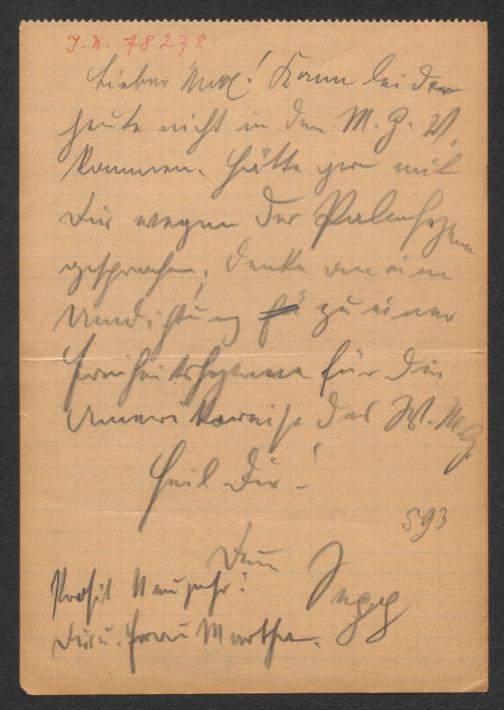 J. N. 78278
Lieber Max! Kann leider
heute nicht in den M. G. V.
kommen. Hätte gern mit
Dir wegen der Palmhymne
gesprochen. Denke an eine
Umdichtung zu einer
Freiheitshymne für die
Amerikareise des W. M. G. V.
Heil Dir!
593
Dein
Prosit Neujahr!
Dir u. Frau Martha.